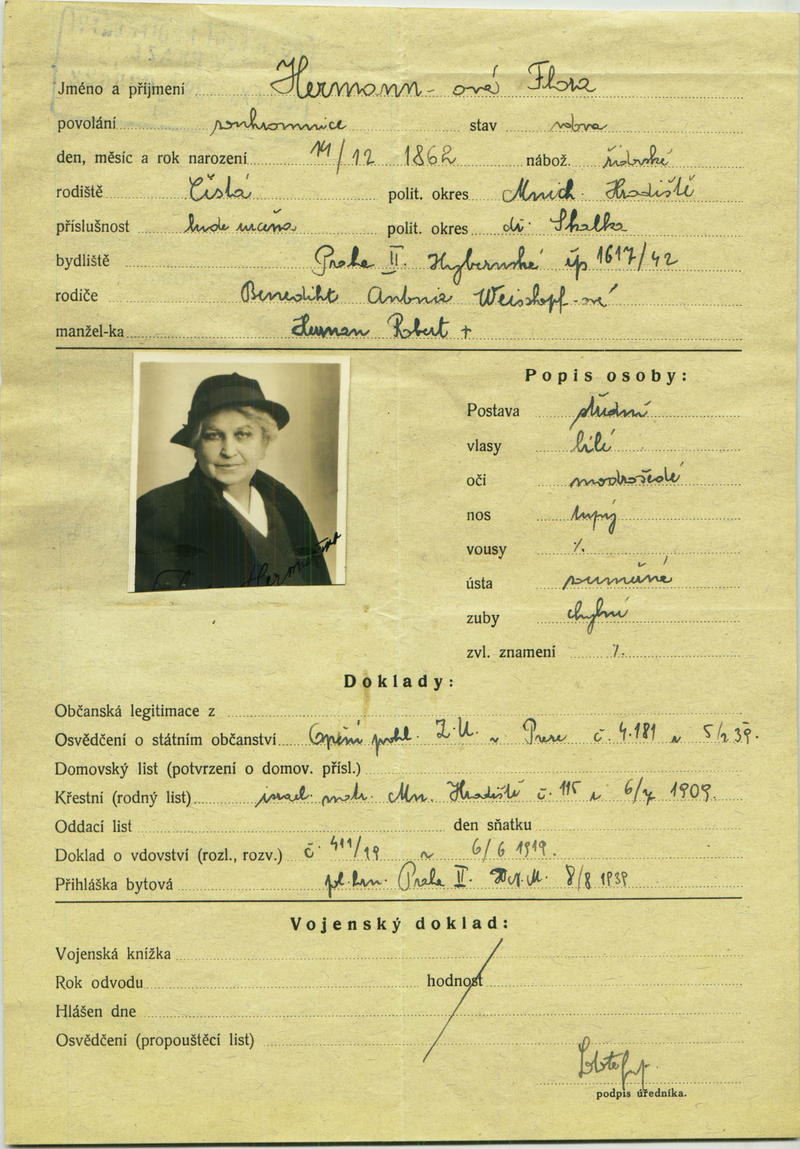 Jméno a příjmení Hermann-ová Flora
povolání soukromnice stav vdova
den, měsíc a rok narození 14/12 1862 nábož. židovské
rodiště Čistá polit. okres Mnich. Hradiště
příslušnost bude určena polit. okres Skalka
bydliště Praha II. Hybernská čp 1617/42
rodiče Benedikt Antonie Weisskopf-ová
manžel-ka Herman Robert +
Popis osoby:
Postava střední
vlasy bílé
oči modrošedé
nos tupý
vousy ٪.
ústa souměrná
zuby chybí
zvl. znamení ٪.
Doklady:
Občanská legitimace z
Osvědčení o státním občanství Z. U. v Praze č. 4.181 5/2 39.
Domovský list (potvrzení o domov. přísl.)
Křestní (rodný list) israel. matr. Mn. Hradiště č. 115 z 6/7 1909.
Oddací list den sňatku
Doklad o vdovství (rozl., rozv.) č. 411/19 6/6 1919.
Přihláška bytová Praha II. 8/8 1939
Vojenský doklad:
Vojenská knížka
Rok odvodu hodnost
Hlášen dne
Osvědčení (propouštěcí list)
podpis úředníka.